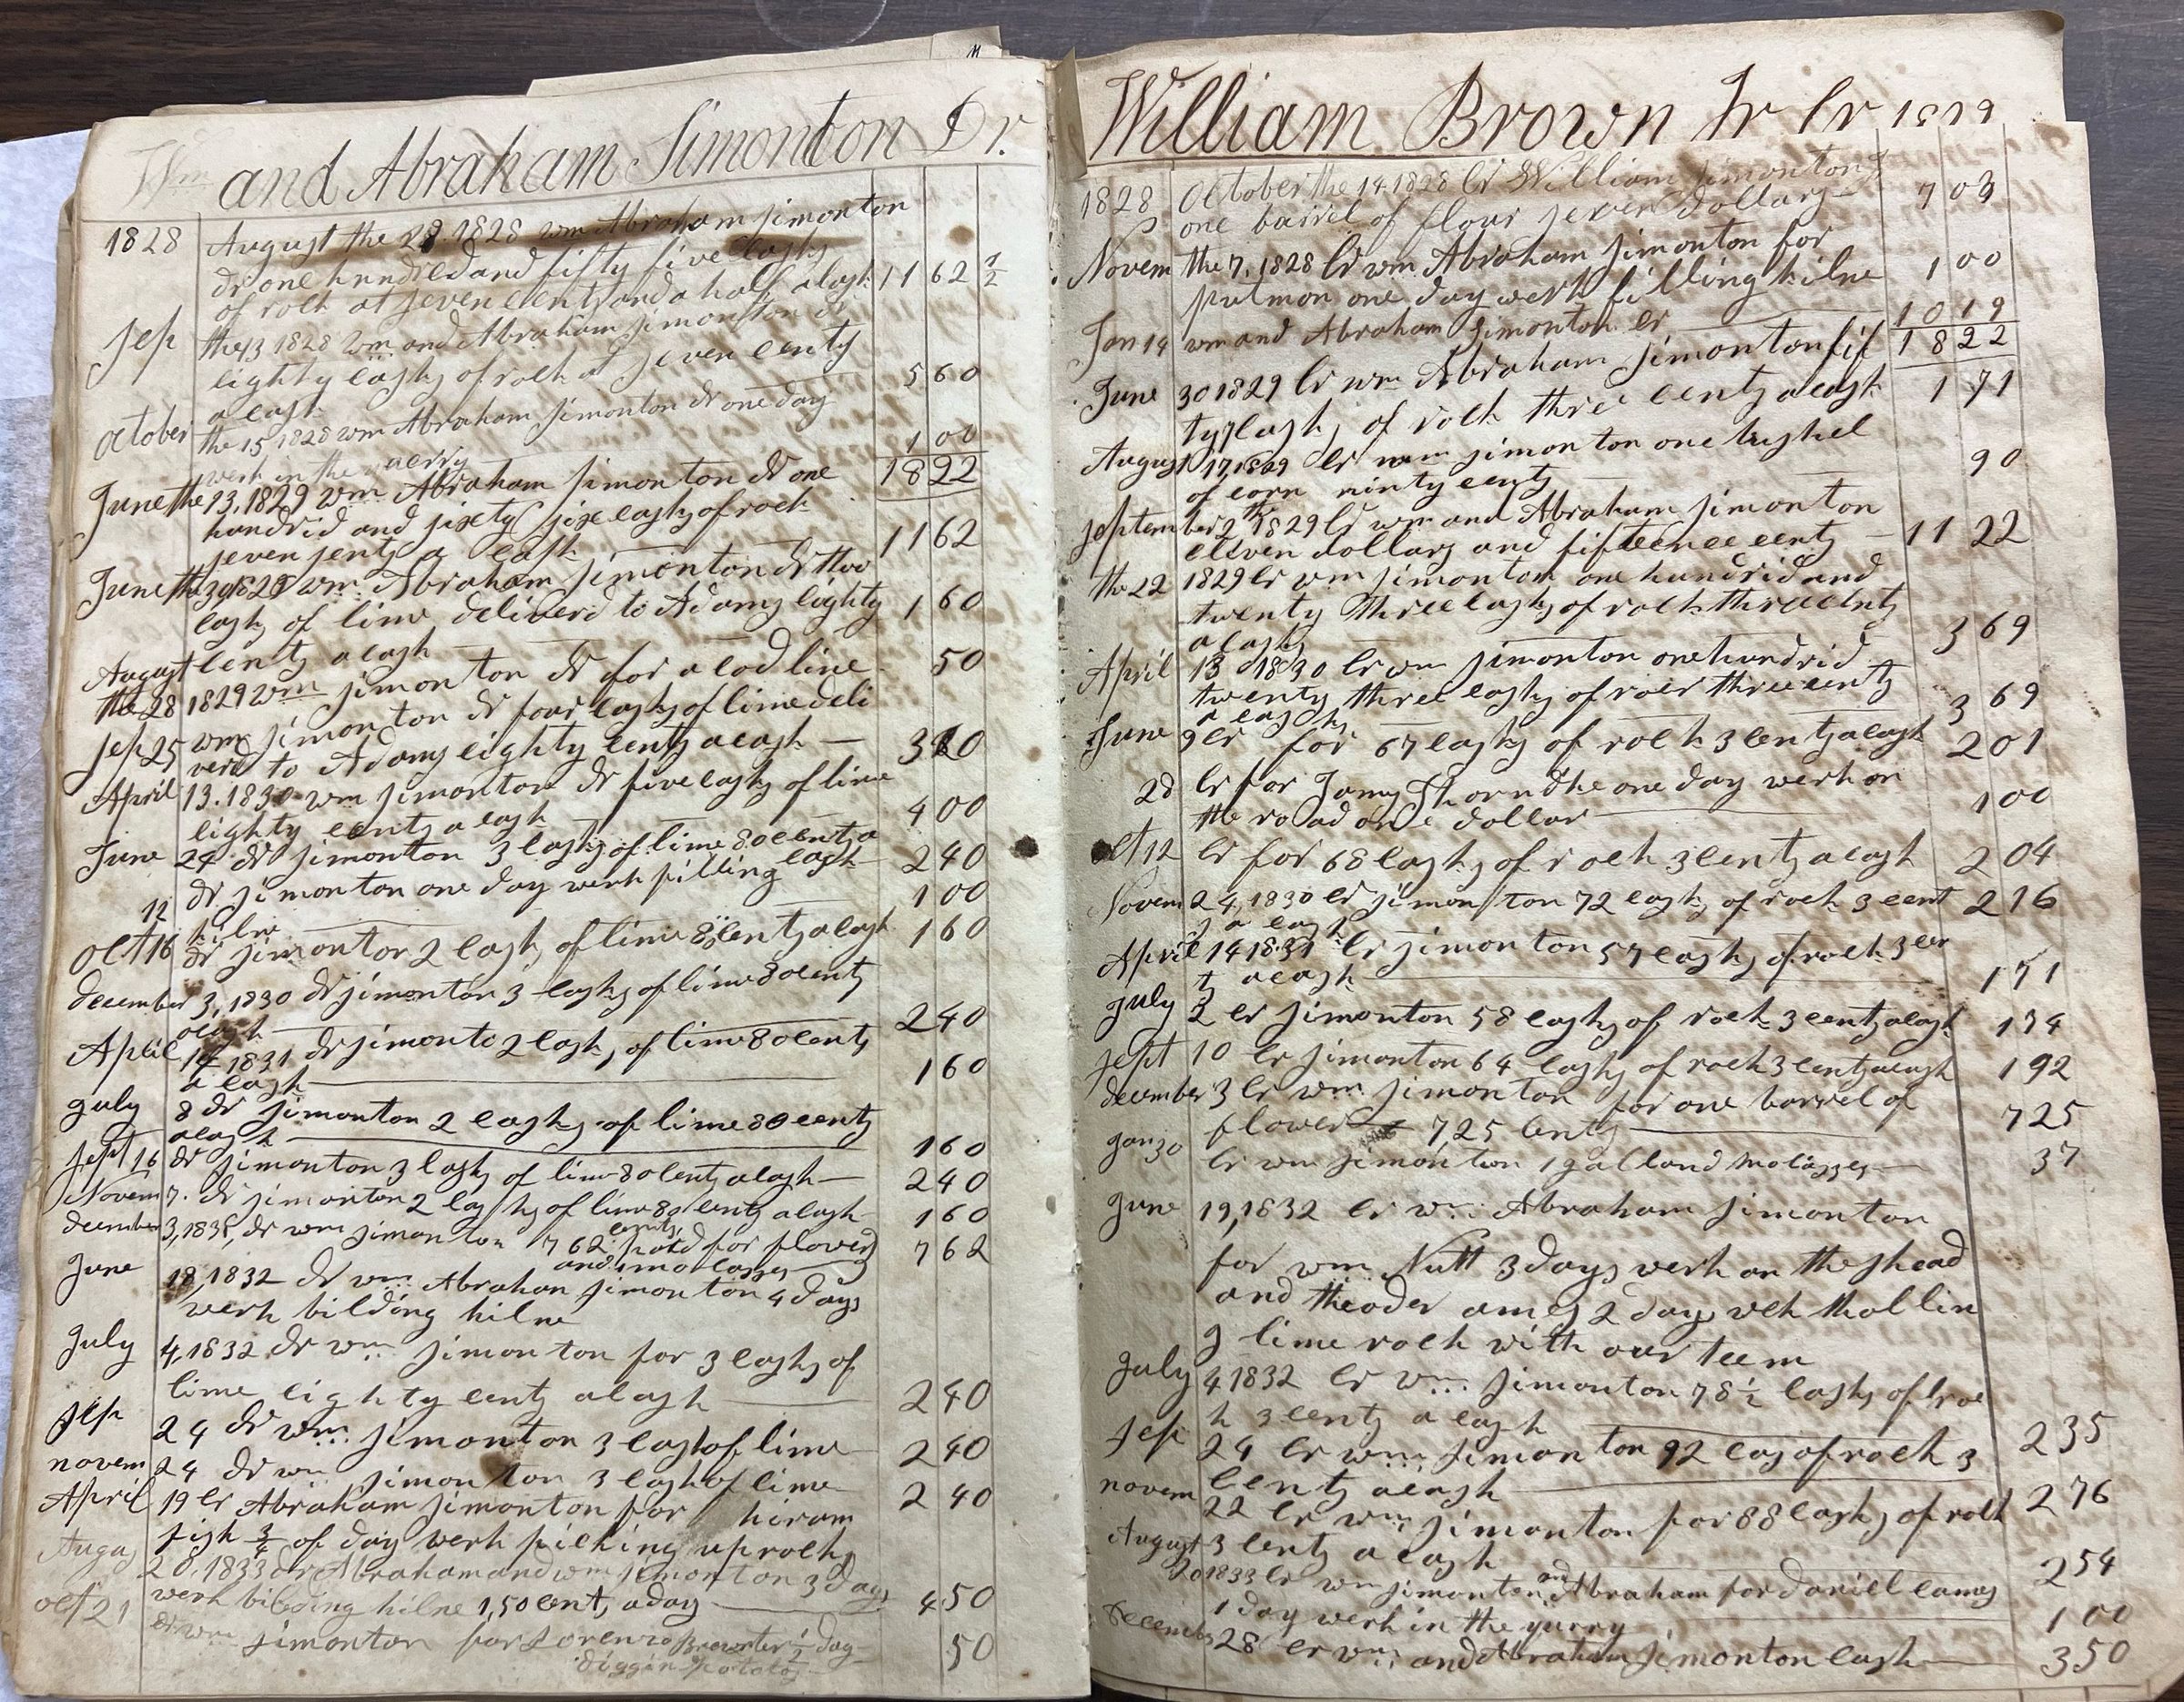 Wm and Abraham Simonton Dr.
1828 August the 28. 1828 wm Abraham simonton
dr one hundred and fifty five casks
of rock at seven cents and a half a cask 11 62 1/2
sep the 13 1828 Wm and Abraham simonton dr
eighty casks of rock at seven cents
a cask 5 60
october the 15 1828 wm Abraham simonton dr one day
werk in the 1 00
18 22
June the 23, 1829 wm Abraham simonton dr one
hundrid and sixety six casks of rock
seven sents a cask 11 62
June the 30 1829 wm Abraham simonton dr two
casks of lime deliverd to Adams eighty
cents a cask 1 60
August
the 28 1829 wm simonton dr for a lod lime 50
sep 25 wm simonton dr four casks of lime deli
verd to Adams eighty cents a cask 3 20
April 13. 1830 wm simonton dr five casks of lime
eighty cents a cask 4 00
June 24 dr simonton 3 casks of lime 80 cents a
cask 2 40
12 dr simonton one day werk filling
kilne 1 00
oct 16 dr simonton 2 casks of lime 80 cents a cask 1 60
december 3, 1830 dr simonton 3 casks of lime 80 cents
a cask 2 40
April 14 1831 dr simonto 2 casks of lime 80 cents
a cask 1 60
july 8 dr simonton 2 casks of lime 80 cents
a cask 1 60
sept 16 dr simonton 3 casks of lime 80 cents a cask 2 40
Novem 7. dr simonton 2 casks of lime 80 cents a cask 1 60
december 3, 1831, dr wm simonton 7 62 cents paid for flower 7 62
and molasses
June 18, 1832 dr wm Abraham simonton 4 days
werk bilding kilne
July 4, 1832 dr wm simonton for 3 casks of
lime eighty cents a cask 2 40
sep 24 dr wm simonton 3 cask of lime 2 40
novem 24 dr wm simonton 3 cask of lime 2 40
April 19 cr Abraham simonton for hiram
fish 3/4 of day werk picking up rock
Augus 20. 1833 dr Abraham and wm simonton 3 days
werk bilding kilne 1,50 cents a day 4 50
oct 21 dr wm simonton for Lorenzo Brewster 1/2 day 50
diggin potatos
William Brown Jr Cr 1829
1828 October the 14 1828 Cr William simonton
one barrel of flour seven dollars 7 03
Novem the 7. 1828 Cr wm Abraham simonton for
putmon one day werk filling kilne 1 00
Jan 14 wm and Abraham simonton cr 10 19
18 22
June 30 1829 Cr wm Abraham simonton fif
ty 7 casks of rock three cents a cask 1 71
August 17, 1829 Cr wm simonton one bushel
of corn ninty cents 90
september 2 1829 Cr wm and Abraham simonton
eleven dollars and fifteen cents 11 22
the 22 1829 Cr wm simonton one hundrid and
twenty three casks of rock three cents
a cask 3 69
April 13 1830 Cr wm simonton one hundrid
twenty three casks of rock three cents
a cask 3 69
June 9 Cr for 67 casks of rock 3 cents a cask 2 01
28 Cr for Jams Thorndike one day werk on
the road one dollar 1 00
oct 12 Cr for 68 casks of rock 3 cents a cask 2 04
Novem 24, 1830 Cr simonton 72 casks of rock 3 cent 2 16
s a cask
April 14 1831 Cr simonton 57 casks of rock 3 cen
ts a cask 1 71
july 2 cr simonton 58 casks of rock 3 cents a cask 1 74
sept 10 Cr simonton 64 casks of rock 3 cents a cask 1 92
december 3 Cr wm simonton for one barrel of
flower 7,25 cents 7 25
jan 30 Cr wm simonton 1 galland molasses 37
June 19, 1832 Cr wm Abraham simonton
for wm Nutt 3 days werk on the shead
and theoder ames 2 days wek hollin
g lime rock with our teem
July 4 1832 Cr wm simonton 78 1/2 casks of roc
k 3 cents a cask 2 35
sep 24 Cr wm simonton 92 cas of rock 3
cents a cask 2 76
novem 22 Cr wm simonton for 88 casks of rock
3 cents a cask 2 54
August 20 1833 Cr wm simonton and Abraham for daniell eames
1 day werk in the qurry 1 00
december 28 Cr wm and Abraham simonton cash 3 50